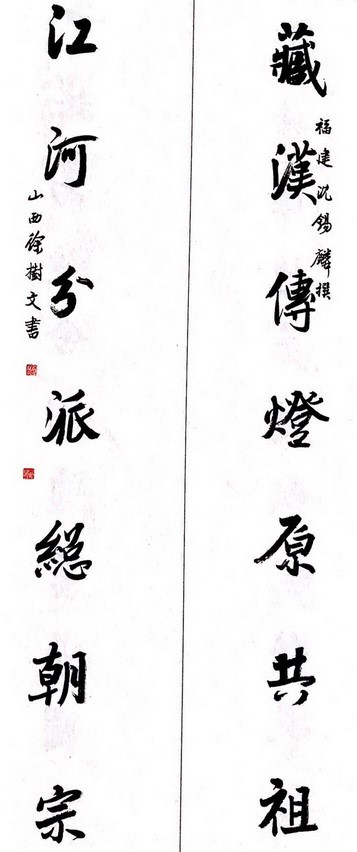 藏漢傳燈原共祖
福建沈錫麟撰
江河分派總朝宗
山西徐樹文書